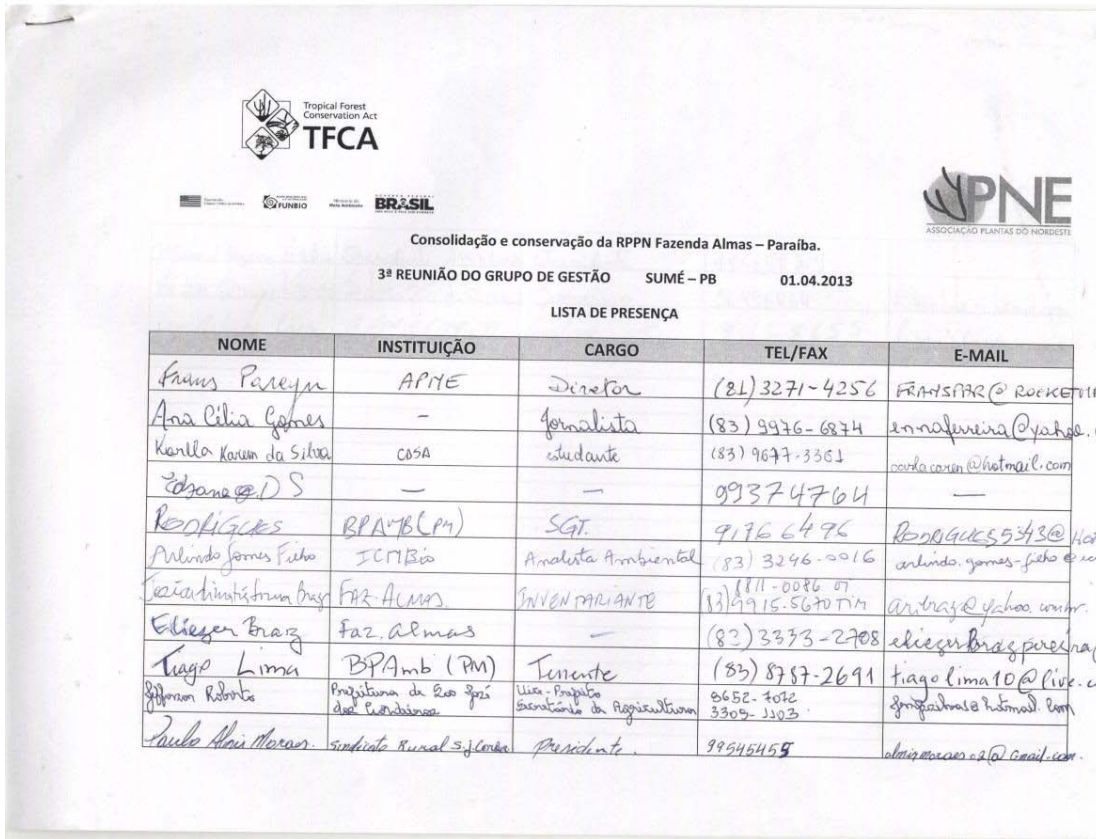 Tropical Forest
Conservation Act
TFCA
FUNBIO
Ministério do
Meio Ambiente
BRASIL
PNE
ASSOCIAÇÃO PLANTAS DO NORDESTE
Consolidação e conservação da RPPN Fazenda Almas – Paraíba.
3ª REUNIÃO DO GRUPO DE GESTÃO SUMÉ – PB 01.04.2013
LISTA DE PRESENÇA
NOME INSTITUIÇÃO CARGO TEL/FAX E-MAIL
Frans Pareyn APNE Diretor (81) 3271-4256
Ana Célia Gomes - Jornalista (83) 9976-6874 ennaferreira@yahoo.
Karlla Karem da Silva estudante (83) 9677-3361 carlacaren@hotmail.com
— — 99374764 —
RODRIGUES BPAMB(PM) SGT. 91766496 RODRIGUES5343@
Arlindo Gomes Filho ICMBio Analista Ambiental (83) 3246-0016 arlindo.gomes-filho@
FAZ. ALMAS. INVENTARIANTE 8811-0086 OI
(83)9915-5670 TIM
Eliezer Braz Faz. Almas — (83) 3333-2708
Tiago Lima BPAmb (PM) Tenente (83) 8787-2691 tiagolima10@live.
Jefferson Roberto Prefeitura de São José Vice-Prefeito 8652-7072
dos Cordeiros Secretário da Agricultura 3309-1103
Paulo Almir Moraes. Sindicato Rural S.J. Presidente. 99545455 almirmoraes02@Gmail.com.